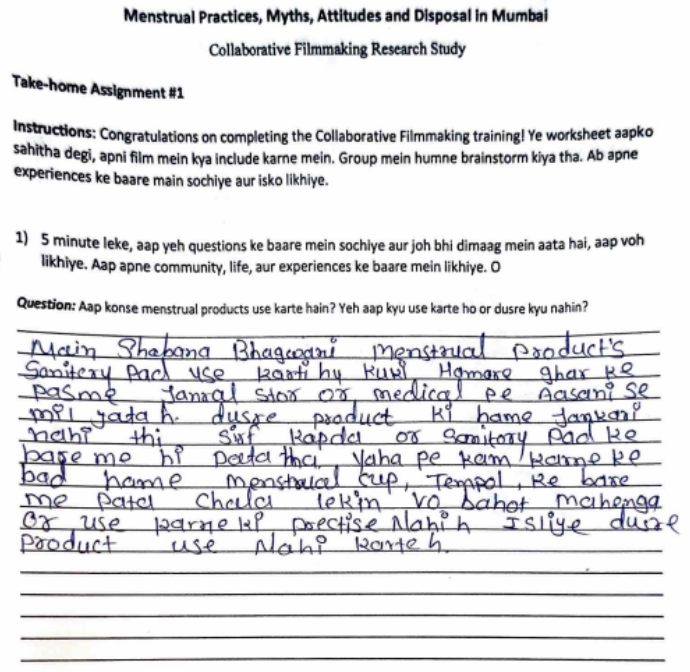 Menstrual Practices, Myths, Attitudes and Disposal in Mumbai
Collaborative Filmmaking Research Study
Take-home Assignment #1
Instructions: Congratulations on completing the Collaborative Filmmaking training! Ye worksheet aapko
sahitha degi, apni film mein kya include karne mein. Group mein humne brainstorm kiya tha. Ab apne
experiences ke baare main sochiye aur isko likhiye.
1) 5 minute leke, aap yeh questions ke baare mein sochiye aur joh bhi dimaag mein aata hai, aap voh
likhiye. Aap apne community, life, aur experiences ke baare mein likhiye. O
Question: Aap konse menstrual products use karte hain? Yeh aap kyu use karte ho or dusre kyu nahin?
Main Shabana Bhagwani menstrual product's
Sanitery Pad use karti hu kuki Hamare ghar ke
pasme Janral stor or medical pe Aasani se
mil jata h. dusre product ki hame Jankari
nahi thi Sirf kapda or Sanitory Pad ke
bare me hi pata tha. Yaha pe kam karne ke
bad hame menstrual cup, Tempol, ke bare
me pata chala lekin vo bahot mahenga
or use karne ki prectise Nahi h Isliye dusre
product use Nahi karte h.